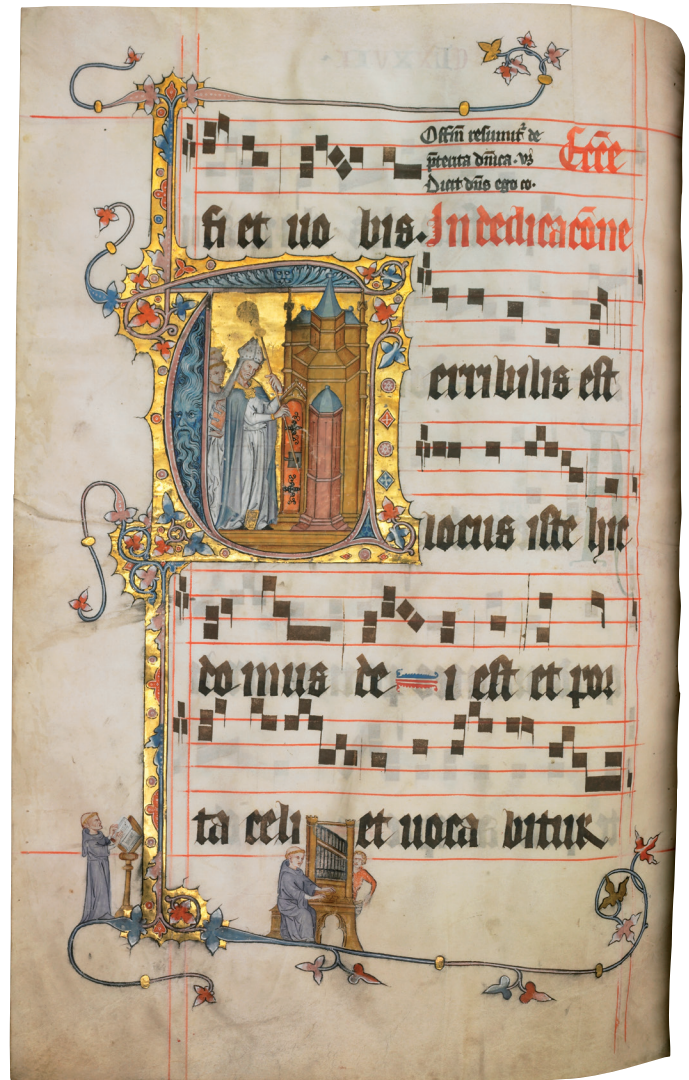 Offm̄ resumit᷑ de
ptenta dn̄ica. vs̄
Dicit dn̄s ego co.
fi et uo bis. In dedicacōne
Eccē
Terribilis est
locus iste hic
domus de i est et por
ta celi et uoca bitur